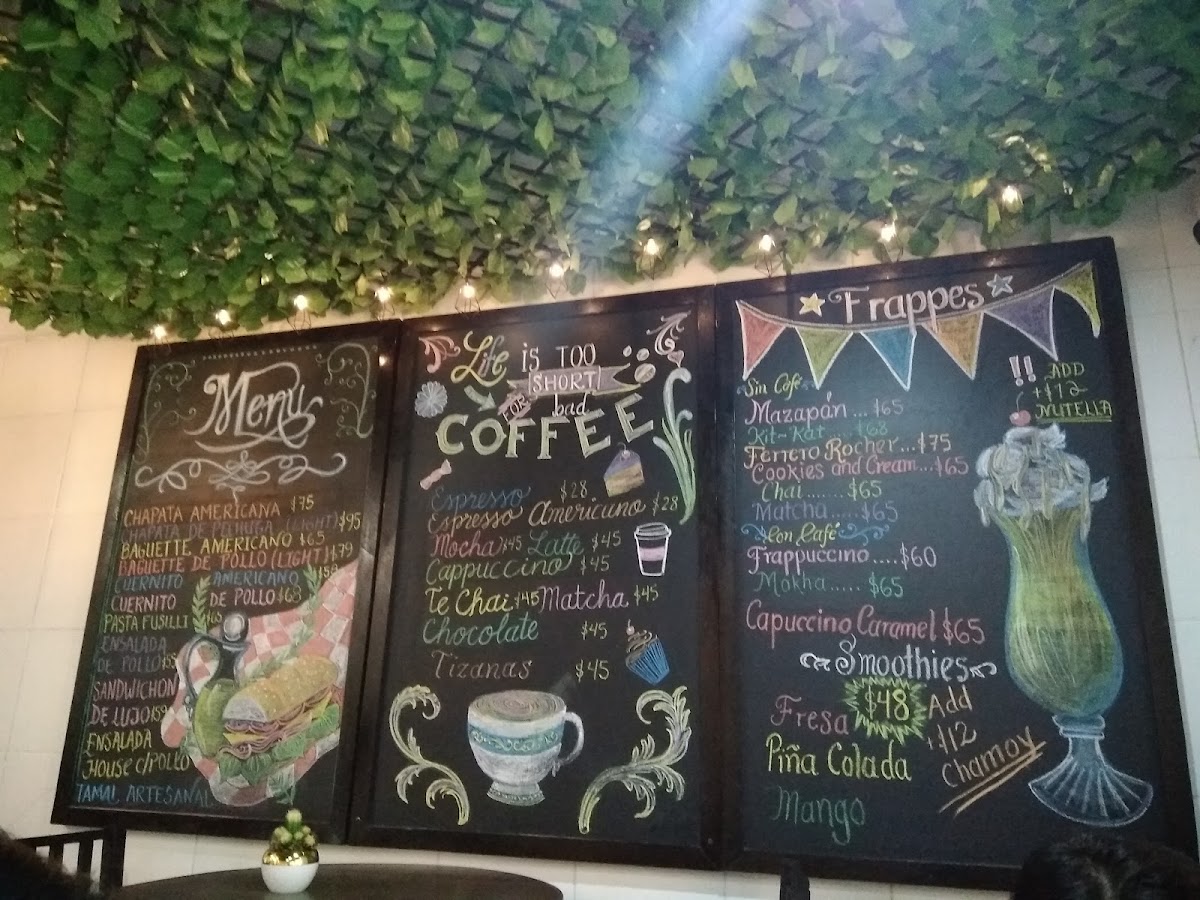 Menu
CHAPATA AMERICANA $75
CHAPATA DE PECHUGA (LIGHT) $95
BAGUETTE AMERICANO $65
BAGUETTE DE POLLO (LIGHT) $79
CUERNITO AMERICANO
CUERNITO DE POLLO $68
PASTA FUSILLI
ENSALADA
DE POLLO
SANDWICHON
DE LUJO $59
ENSALADA
HOUSE C/POLLO
TAMAL ARTESANAL
Life IS TOO
SHORT
FOR bad
COFFEE
Espresso $28
Espresso Americano $28
Mocha $45 Latte $45
Cappuccino $45
Te Chai $45 Matcha $45
Chocolate $45
Tizanas $45
Frappes
Sin Café
Mazapán... $65
Kit-Kat.... $68
Ferrero Rocher...$75
Cookies and Cream...$65
Chai.......$65
Matcha.....$65
Con Café
Frappuccino....$60
Mokha.... $65
Capuccino Caramel $65
!! ADD
+$12
NUTELLA
Smoothies
$48
Fresa
Piña Colada
Mango
Add
+$12
Chamoy